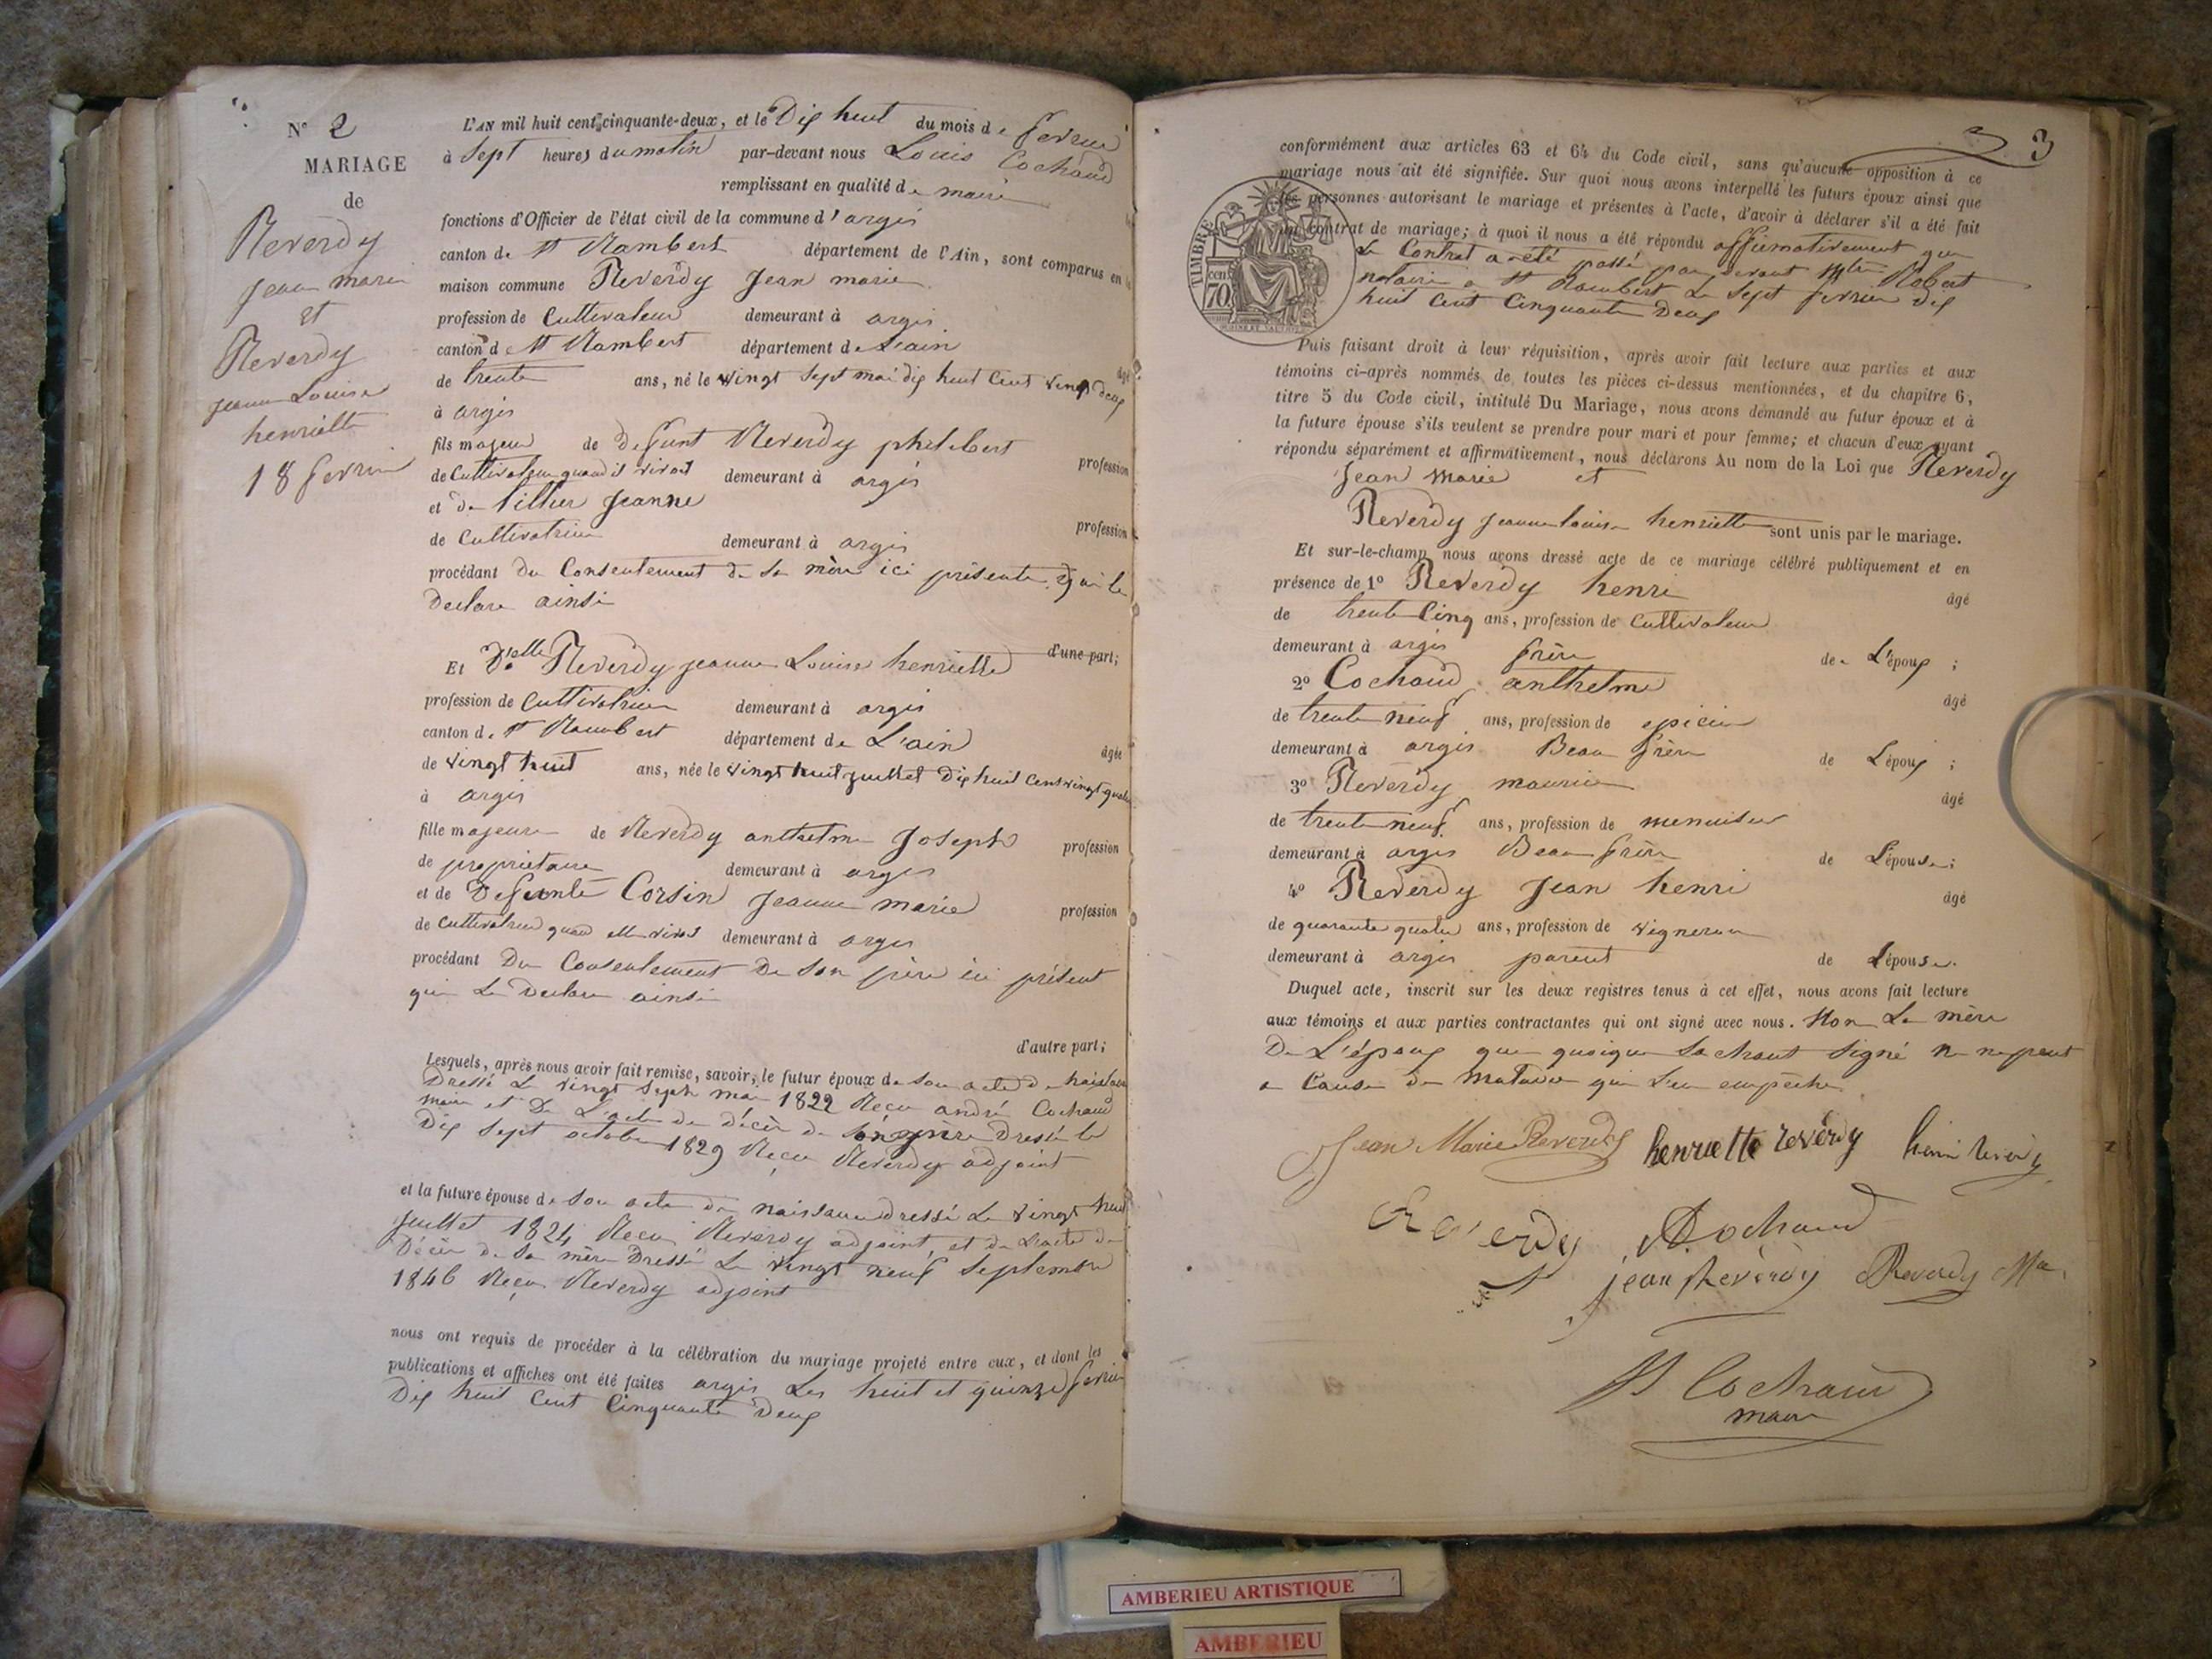 N° 2
MARIAGE
de
Reverdy
Jean marie
et
Reverdy
Jeanne Louise
henriette
18 fevrier
L'AN mil huit cent cinquante-deux, et le Dix huit du mois de fevrier
à Sept heures du matin par-devant nous Louis Cochaud
remplissant en qualité de maire
fonctions d'Officier de l'état civil de la commune d'argis
canton de St Rambert département de l'Ain, sont comparus en la
maison commune Reverdy Jean marie
profession de Cultivateur demeurant à argis
canton de St Rambert département de L'ain
âgé
de trente ans, né le vingt Sept mai dix huit Cent vingt deux
à argis
fils majeur de Defunt Reverdy philibert
profession
de Cultivateur quand il vivait demeurant à argis
et de tillier Jeanne
profession
de Cultivatrice demeurant à argis
procédant du Consentement de Sa mère ici présente qui le
Declare ainsi
d'une part;
Et Delle Reverdy Jeanne Louise henriette
profession de Cultivatrice demeurant à argis
canton de St Rambert département de L'ain
âgée
de vingt huit ans, née le vingt huit juillet Dix huit Cent vingt quatre
à argis
fille majeure de Reverdy anthelme Joseph
profession
de propriétaire demeurant à argis
et de Defunte Corsin Jeanne marie
profession
de Cultivatrice quand elle vivait demeurant à argis
procédant Du Consentement De Son père ici présent
qui Le Declare ainsi
d'autre part;
Lesquels, après nous avoir fait remise, savoir, le futur époux de Son acte de naissance
Dressé Le vingt Sept mai 1822 Reçu andré Cochaud
maire et De L'acte de décès de Son père Dressé le
Dix Sept octobre 1829 Reçu Reverdy adjoint
et la future épouse de Son acte de naissance dressé Le vingt huit
Juillet 1824 Reçu Reverdy adjoint, et de L'acte de
Décès de Sa mère Dressé Le vingt neuf Septembre
1846 Reçu Reverdy adjoint
nous ont requis de procéder à la célébration du mariage projeté entre eux, et dont les
publications et affiches ont été faites argis Les huit et quinze fevrier
Dix huit Cent Cinquante Deux
3
conformément aux articles 63 et 64 du Code civil, sans qu'aucune opposition à ce
mariage nous ait été signifiée. Sur quoi nous avons interpellé les futurs époux ainsi que
les personnes autorisant le mariage et présentes à l'acte, d'avoir à déclarer s'il a été fait
un contrat de mariage; à quoi il nous a été répondu affirmativement que
Le Contrat a été passé par devant Mtre Robert
notaire a St Rambert Le Sept fevrier dix
huit Cent Cinquante Deux
TIMBRE
cent. 70
Puis faisant droit à leur réquisition, après avoir fait lecture aux parties et aux
témoins ci-après nommés de toutes les pièces ci-dessus mentionnées, et du chapitre 6,
titre 5 du Code civil, intitulé Du Mariage, nous avons demandé au futur époux et à
la future épouse s'ils veulent se prendre pour mari et pour femme; et chacun d'eux ayant
répondu séparément et affirmativement, nous déclarons Au nom de la Loi que Reverdy
Jean Marie et
Reverdy Jeanne Louise henriette sont unis par le mariage.
Et sur-le-champ nous avons dressé acte de ce mariage célébré publiquement et en
présence de 1° Reverdy henri
âgé
de trente Cinq ans, profession de Cultivateur
demeurant à argis frère de L'époux ;
2° Cochaud anthelme
âgé
de trente neuf ans, profession de epicier
demeurant à argis Beau frère de Lépoux ;
3° Reverdy maurice
âgé
de trente neuf ans, profession de menuisier
demeurant à argis Beau frère de L'épouse ;
4° Reverdy Jean henri
âgé
de quarante quatre ans, profession de vigneron
demeurant à argis parent de Lépouse.
Duquel acte, inscrit sur les deux registres tenus à cet effet, nous avons fait lecture
aux témoins et aux parties contractantes qui ont signé avec nous. Non La mère
De L'époux qui quoique Sachant Signé ne ne peut
a Cause de Maladie qui L'en empêche
Jean Marie Reverdy henriette reverdy henri reverdy
Reverdy Cochaud
jean Reverdy Reverdy Mce
Ls Cochaud
maire
AMBERIEU ARTISTIQUE
AMBERIEU